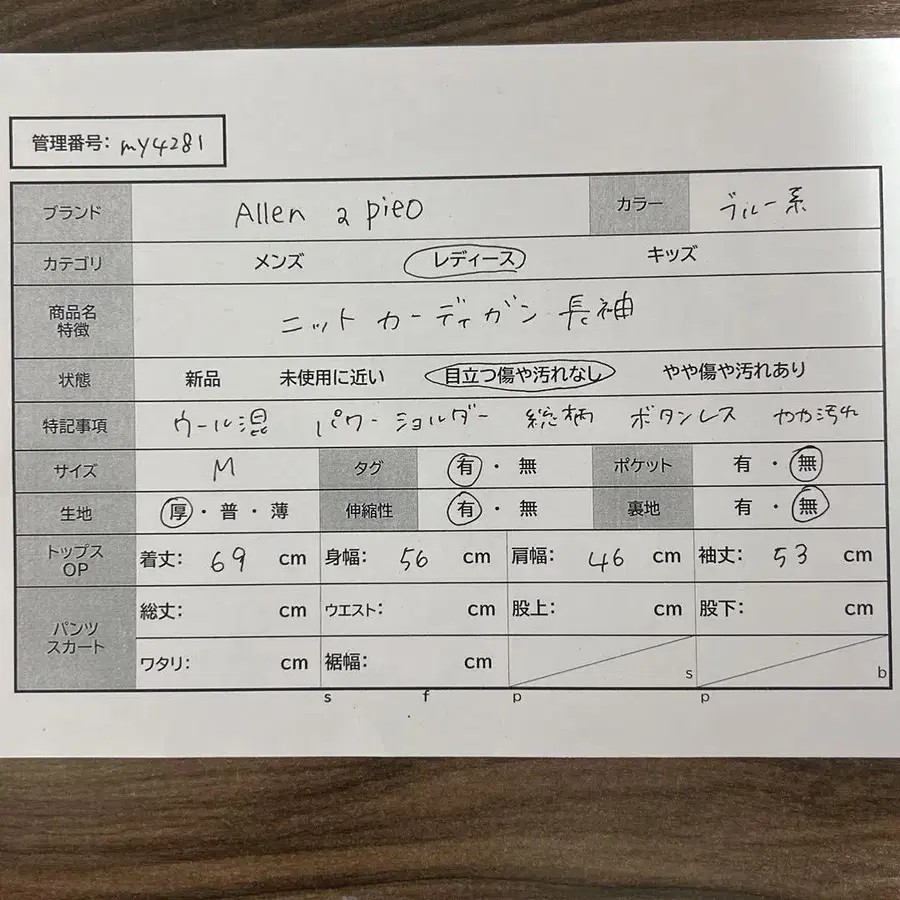 管理番号: my4281
ブランド Allen a pieo カラー ブルー系
カテゴリ メンズ レディース キッズ
商品名 特徴 ニットカーディガン 長袖
状態 新品 未使用に近い 目立つ傷や汚れなし やや傷や汚れあり
特記事項 ウール混 パワーショルダー 総柄 ボタンレス やや汚れ
サイズ M タグ 有・無 ポケット 有・無
生地 厚・普・薄 伸縮性 有・無 裏地 有・無
トップス OP 着丈: 69 cm 身幅: 56 cm 肩幅: 46 cm 袖丈: 53 cm
パンツ スカート 総丈: cm ウエスト: cm 股上: cm 股下: cm
ワタリ: cm 裾幅: cm s b
s f p p